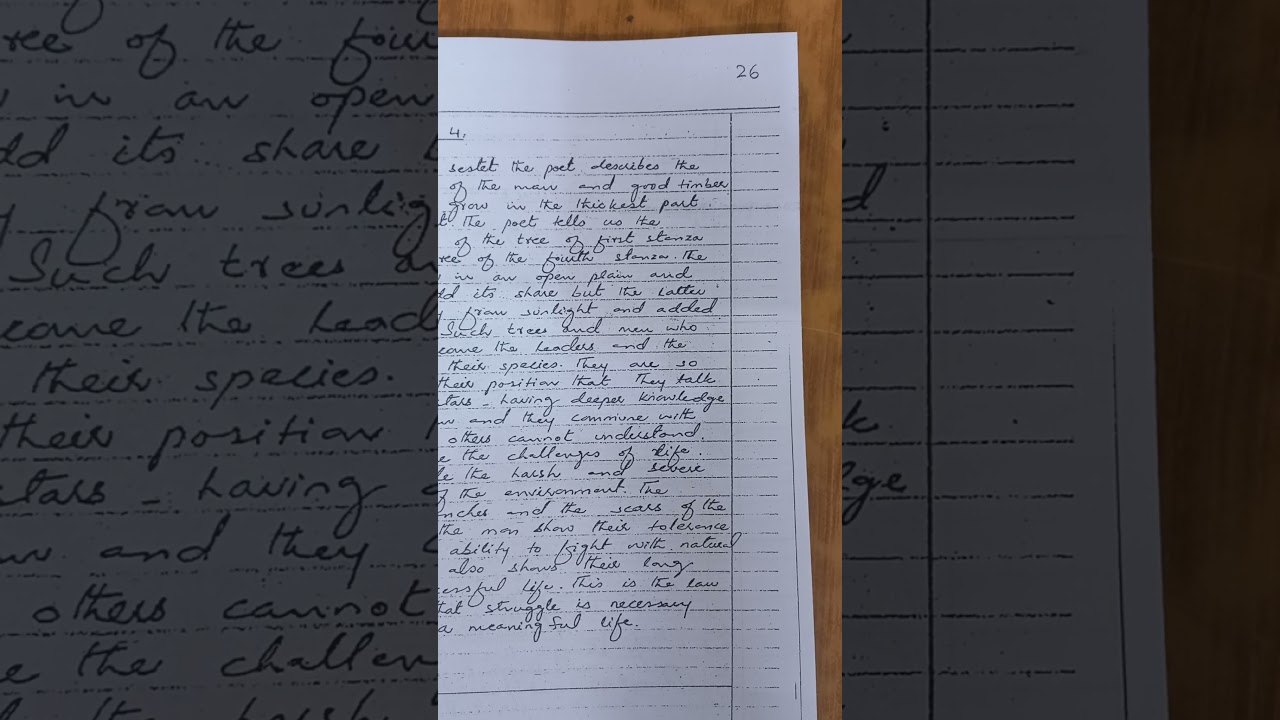 26
4.
sestet the poet describes the
of the man and good timber
grow in the thickest part.
t the poet tells us the
of the tree of first stanza
ree of the fourth stanza. The
in an open plain and
dd its share but the latter
y from sunlight and added
Such trees and men who
come the leaders and the
their species. They are so
their position that they talk
stars - having deeper knowledge
and they commune with
others cannot understand.
e the challenges of life.
le the harsh and severe
of the environment. The
nches and the scars of the
the man show their tolerance
ability to fight with natural
also shows their long
cessful life. This is the law
that struggle is necessary
a meaningful life.